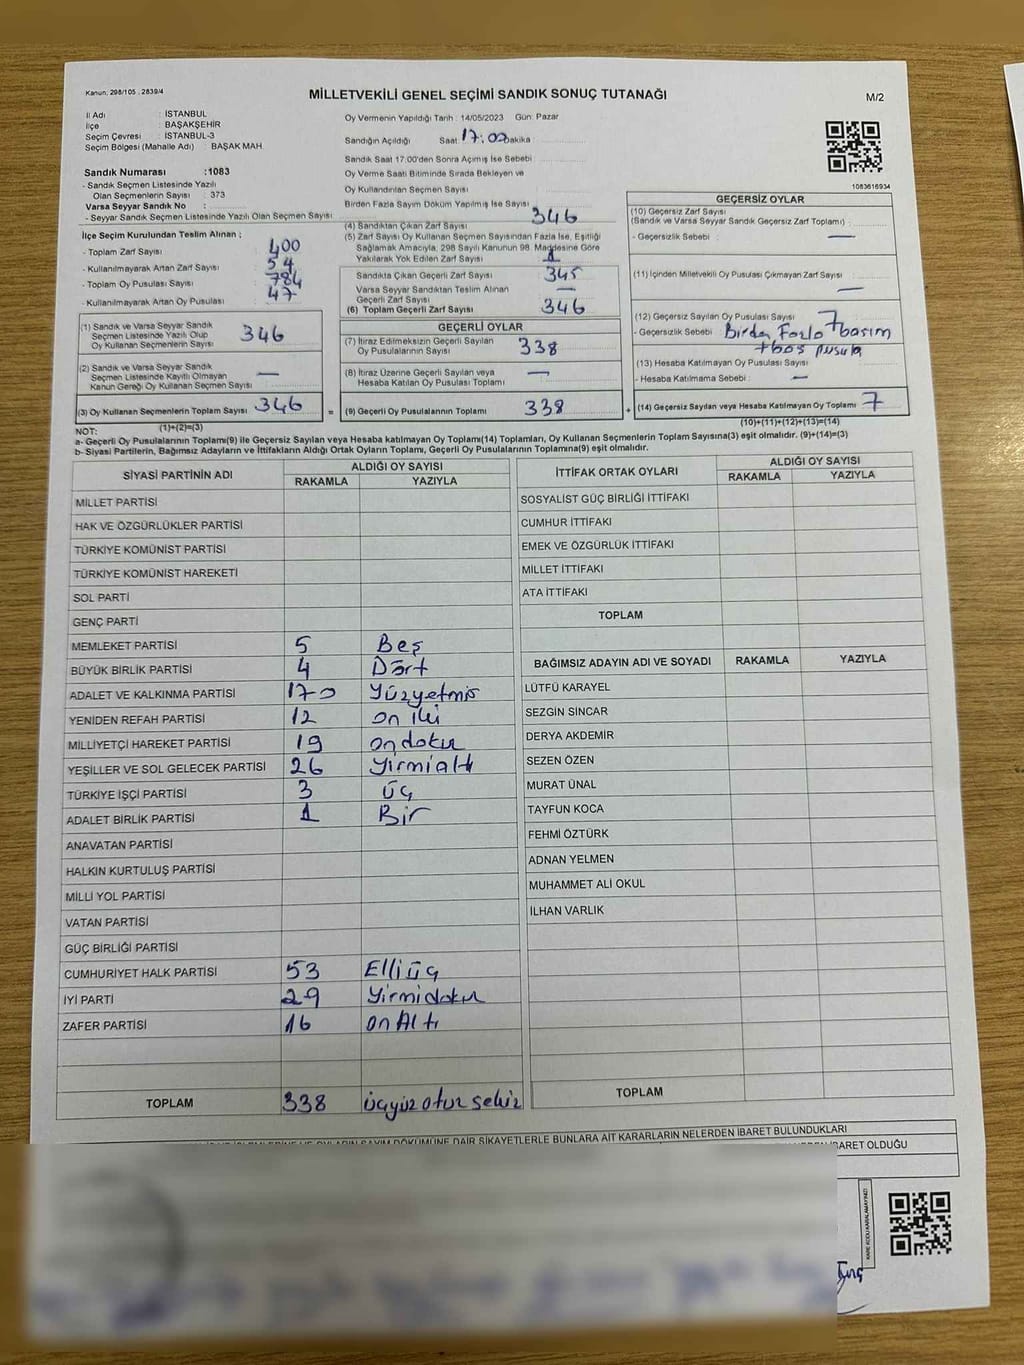 Kanun: 298/105 . 2839/4
MİLLETVEKİLİ GENEL SEÇİMİ SANDIK SONUÇ TUTANAĞI
M/2
İl Adı : İSTANBUL
İlçe : BAŞAKŞEHİR
Seçim Çevresi : İSTANBUL-3
Seçim Bölgesi (Mahalle Adı) : BAŞAK MAH.
Sandık Numarası :1083
- Sandık Seçmen Listesinde Yazılı
Olan Seçmenlerin Sayısı : 373
Varsa Seyyar Sandık No :
- Seyyar Sandık Seçmen Listesinde Yazılı Olan Seçmen Sayısı :
Oy Vermenin Yapıldığı Tarih : 14/05/2023 Gün: Pazar
Sandığın Açıldığı Saat: 17:00 Dakika :
Sandık Saat 17:00'den Sonra Açımış İse Sebebi :
Oy Verme Saati Bitiminde Sırada Bekleyen ve
Oy Kullandırılan Seçmen Sayısı :
Birden Fazla Sayım Döküm Yapılmış İse Sayısı :
1083616934
İlçe Seçim Kurulundan Teslim Alınan ;
- Toplam Zarf Sayısı : 400
- Kullanılmayarak Artan Zarf Sayısı : 54
- Toplam Oy Pusulası Sayısı : 784
- Kullanılmayarak Artan Oy Pusulası : 47
(1) Sandık ve Varsa Seyyar Sandık
Seçmen Listesinde Yazılı Olup
Oy Kullanan Seçmenlerin Sayısı : 346
(2) Sandık ve Varsa Seyyar Sandık
Seçmen Listesinde Kayıtlı Olmayan
Kanun Gereği Oy Kullanan Seçmen Sayısı : —
(3) Oy Kullanan Seçmenlerin Toplam Sayısı : 346
(1)+(2)=(3)
(4) Sandıktan Çıkan Zarf Sayısı : 346
(5) Zarf Sayısı Oy Kullanan Seçmen Sayısından Fazla İse, Eşitliği
Sağlamak Amacıyla, 298 Sayılı Kanunun 98. Maddesine Göre
Yakılarak Yok Edilen Zarf Sayısı : 1
Sandıkta Çıkan Geçerli Zarf Sayısı : 345
Varsa Seyyar Sandıktan Teslim Alınan
Geçerli Zarf Sayısı : —
(6) Toplam Geçerli Zarf Sayısı : 346
GEÇERLİ OYLAR
(7) İtiraz Edilmeksizin Geçerli Sayılan
Oy Pusulalarının Sayısı : 338
(8) İtiraz Üzerine Geçerli Sayılan veya
Hesaba Katılan Oy Pusulası Toplamı : —
= (9) Geçerli Oy Pusulalarının Toplamı : 338
GEÇERSİZ OYLAR
(10) Geçersiz Zarf Sayısı
(Sandık ve Varsa Seyyar Sandık Geçersiz Zarf Toplamı) :
- Geçersizlik Sebebi : —
(11) İçinden Milletvekili Oy Pusulası Çıkmayan Zarf Sayısı :
—
(12) Geçersiz Sayılan Oy Pusulası Sayısı : 7
- Geçersizlik Sebebi : Birden Fazla basım
+ boş pusula
(13) Hesaba Katılmayan Oy Pusulası Sayısı :
- Hesaba Katılmama Sebebi : —
+ (14) Geçersiz Sayılan veya Hesaba Katılmayan Oy Toplamı : 7
(10)+(11)+(12)+(13)=(14)
NOT:
a- Geçerli Oy Pusulalarının Toplamı(9) ile Geçersiz Sayılan veya Hesaba katılmayan Oy Toplamı(14) Toplamları, Oy Kullanan Seçmenlerin Toplam Sayısına(3) eşit olmalıdır. (9)+(14)=(3)
b- Siyasi Partilerin, Bağımsız Adayların ve İttifakların Aldığı Ortak Oyların Toplamı, Geçerli Oy Pusulalarının Toplamına(9) eşit olmalıdır.
SİYASİ PARTİNİN ADI
ALDIĞI OY SAYISI
RAKAMLA YAZIYLA
MİLLET PARTİSİ
HAK VE ÖZGÜRLÜKLER PARTİSİ
TÜRKİYE KOMÜNİST PARTİSİ
TÜRKİYE KOMÜNİST HAREKETİ
SOL PARTİ
GENÇ PARTİ
MEMLEKET PARTİSİ 5 Beş
BÜYÜK BİRLİK PARTİSİ 4 Dört
ADALET VE KALKINMA PARTİSİ 170 Yüzyetmiş
YENİDEN REFAH PARTİSİ 12 on iki
MİLLİYETÇİ HAREKET PARTİSİ 19 ondokuz
YEŞİLLER VE SOL GELECEK PARTİSİ 26 Yirmialtı
TÜRKİYE İŞÇİ PARTİSİ 3 üç
ADALET BİRLİK PARTİSİ 1 Bir
ANAVATAN PARTİSİ
HALKIN KURTULUŞ PARTİSİ
MİLLİ YOL PARTİSİ
VATAN PARTİSİ
GÜÇ BİRLİĞİ PARTİSİ
CUMHURİYET HALK PARTİSİ 53 Elliüç
İYİ PARTİ 29 Yirmidokuz
ZAFER PARTİSİ 16 onAltı
TOPLAM 338 üçyüz otuz sekiz
İTTİFAK ORTAK OYLARI
ALDIĞI OY SAYISI
RAKAMLA YAZIYLA
SOSYALİST GÜÇ BİRLİĞİ İTTİFAKI
CUMHUR İTTİFAKI
EMEK VE ÖZGÜRLÜK İTTİFAKI
MİLLET İTTİFAKI
ATA İTTİFAKI
TOPLAM
BAĞIMSIZ ADAYIN ADI VE SOYADI RAKAMLA YAZIYLA
LÜTFÜ KARAYEL
SEZGİN SİNCAR
DERYA AKDEMİR
SEZEN ÖZEN
MURAT ÜNAL
TAYFUN KOCA
FEHMİ ÖZTÜRK
ADNAN YELMEN
MUHAMMET ALİ OKUL
İLHAN VARLIK
TOPLAM
OYLARIN SAYIM DÖKÜMÜNE DAİR ŞİKAYETLERLE BUNLARA AİT KARARLARIN NELERDEN İBARET BULUNDUKLARI
İBARET OLDUĞU
KARE KODU KARALAMAYINIZ!